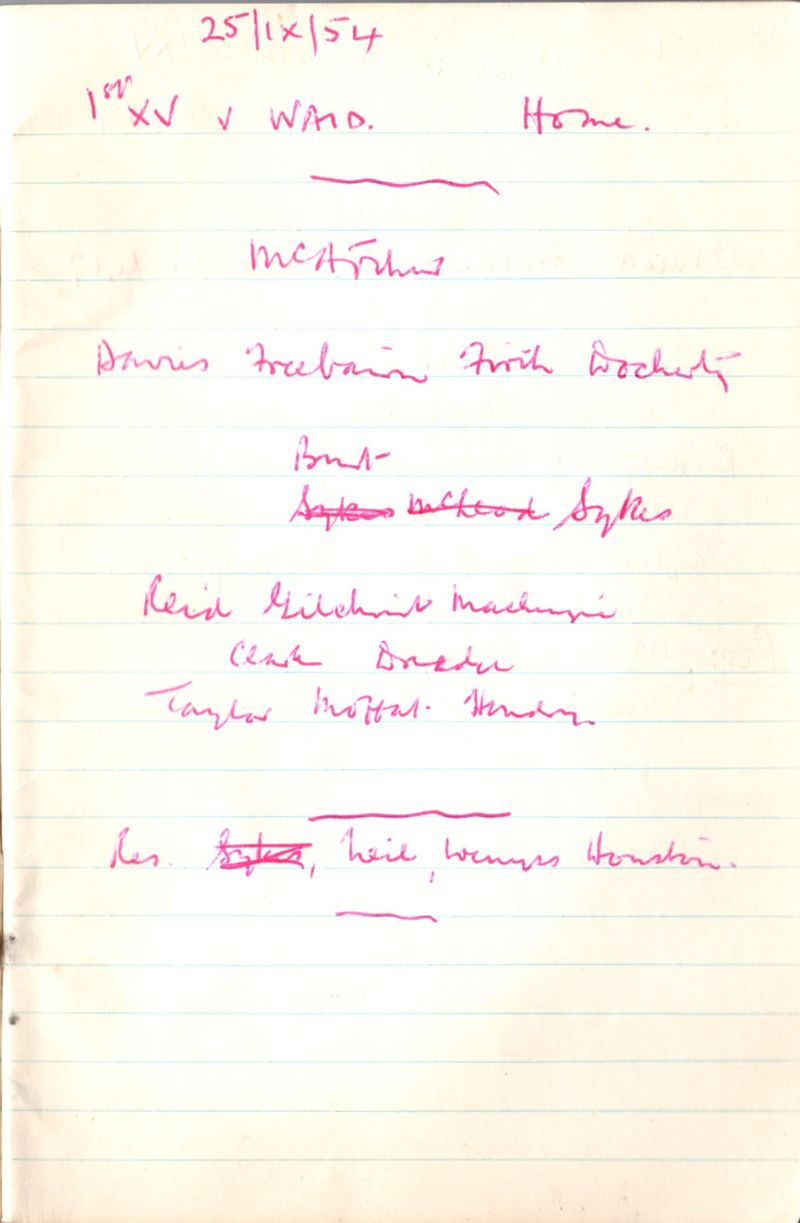 25/IX/54
1st XV v WAID. Home.
Davies Freebairn Firth Docherty
Burt
Sykes McLeod Sykes
Reid Gilchrist Mackenzie
Clark
Taylor Moffat. Hendry.
Res. Sykes, Neil, Wemyss Houston.